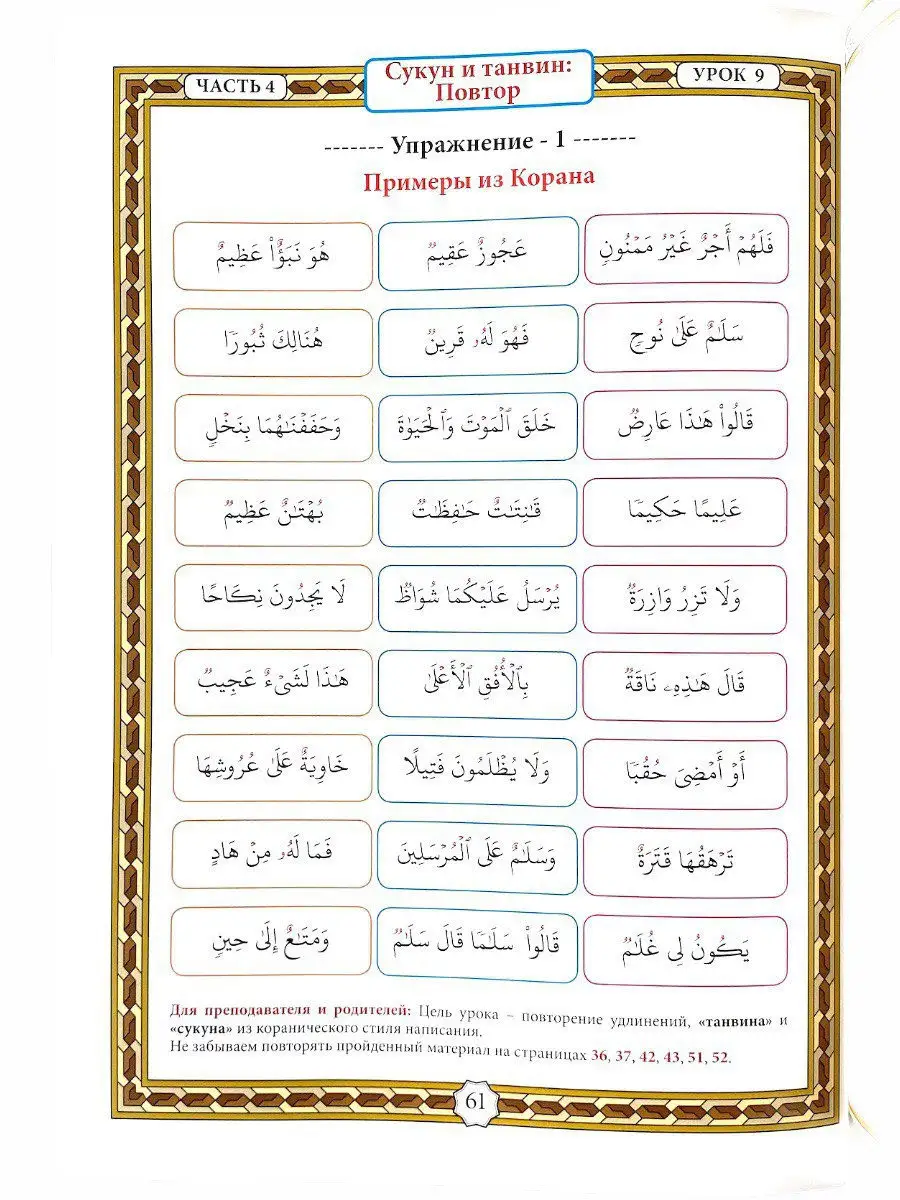 ЧАСТЬ 4
Сукун и танвин:
Повтор
УРОК 9
------- Упражнение - 1 -------
Примеры из Корана
فَلَهُمۡ أَجۡرٌ غَيۡرُ مَمۡنُونٖ
عَجُوزٌ عَقِيمٞ
هُوَ نَبَؤٌاْ عَظِيمٌ
سَلَٰمٌ عَلَىٰ نُوحٖ
فَهُوَ لَهُۥ قَرِينٞ
هُنَالِكَ ثُبُورٗا
قَالُواْ هَٰذَا عَارِضٞ
خَلَقَ ٱلۡمَوۡتَ وَٱلۡحَيَوٰةَ
وَحَفَفۡنَٰهُمَا بِنَخۡلٖ
عَلِيمًا حَكِيمٗا
قَٰنِتَٰتٌ حَٰفِظَٰتٞ
بُهۡتَٰنٌ عَظِيمٞ
وَلَا تَزِرُ وَازِرَةٞ
يُرۡسَلُ عَلَيۡكُمَا شُوَاظٞ
لَا يَجِدُونَ نِكَاحًا
قَالَ هَٰذِهِۦ نَاقَةٞ
بِٱلۡأُفُقِ ٱلۡأَعۡلَىٰ
هَٰذَا لَشَيۡءٌ عَجِيبٞ
أَوۡ أَمۡضِيَ حُقُبٗا
وَلَا يُظۡلَمُونَ فَتِيلًا
خَاوِيَةٌ عَلَىٰ عُرُوشِهَا
تَرۡهَقُهَا قَتَرَةٌ
وَسَلَٰمٌ عَلَى ٱلۡمُرۡسَلِينَ
فَمَا لَهُۥ مِنۡ هَادٍ
يَكُونُ لِي غُلَٰمٞ
قَالُواْ سَلَٰمٗا قَالَ سَلَٰمٞ
وَمَتَٰعٌ إِلَىٰ حِينٖ
Для преподавателя и родителей: Цель урока – повторение удлинений, «танвина» и
«сукуна» из коранического стиля написания.
Не забываем повторять пройденный материал на страницах 36, 37, 42, 43, 51, 52.
61